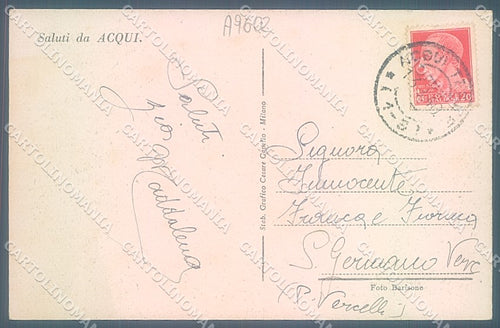 A9602
Saluti da ACQUI.
Saluti
Maddalena
Stab. Grafico Cesare Capello - Milano
Signora
Innocente
Franca e Fiorina
S. Germano Verc
(P. Vercelli)
Foto Barisone
ACQUI
20
CARTOLINOMANIA